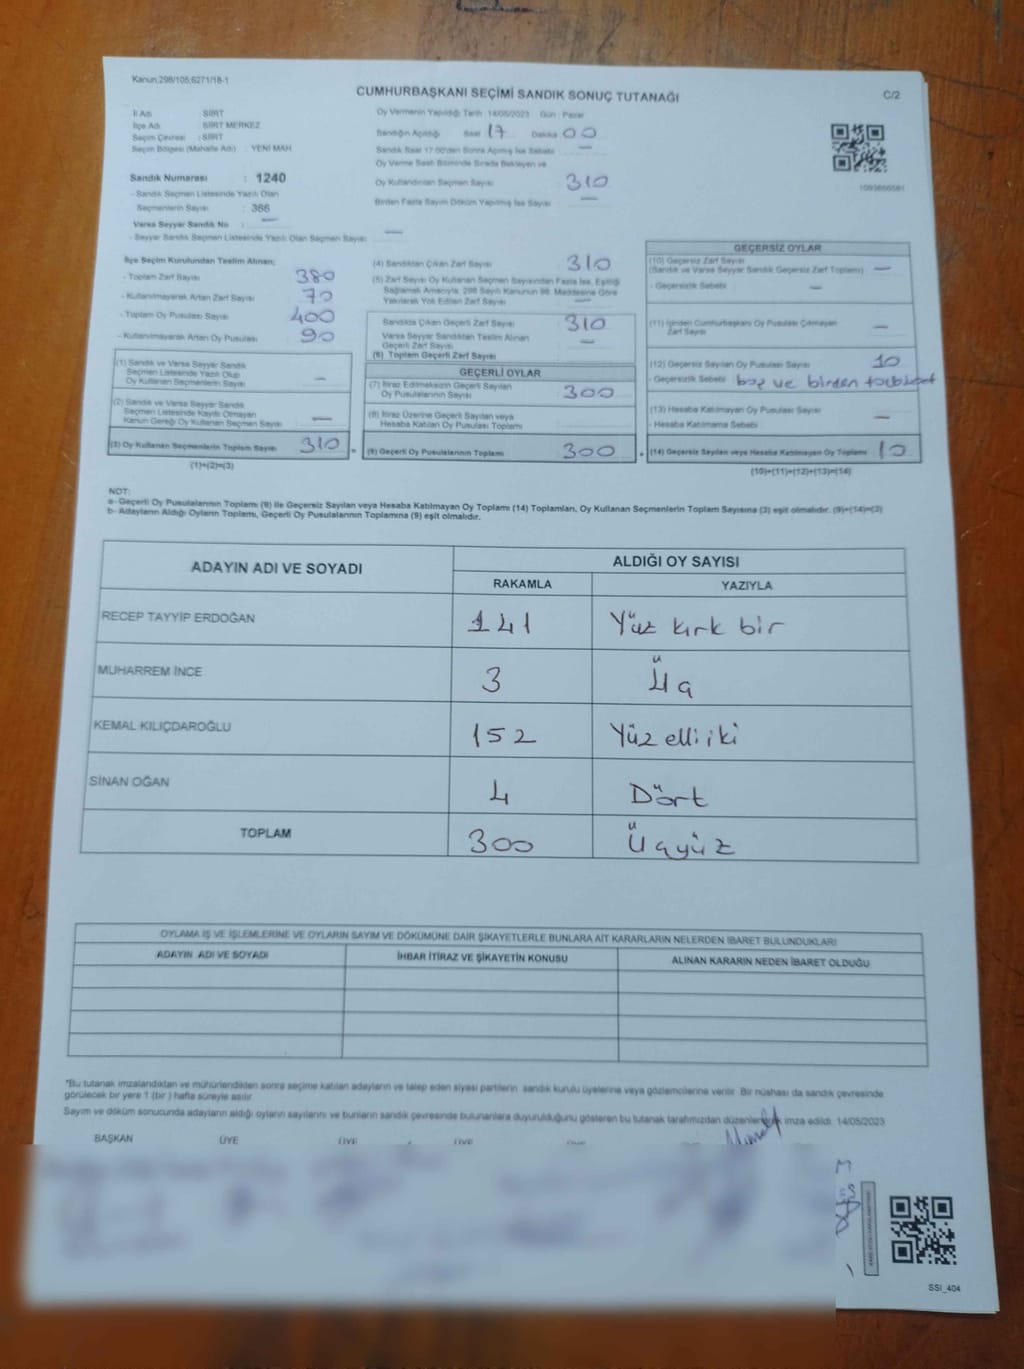 Kanun;298/105;6271/18-1
CUMHURBAŞKANI SEÇİMİ SANDIK SONUÇ TUTANAĞI
C/2
İl Adı : SİİRT
İlçe Adı : SİİRT MERKEZ
Seçim Çevresi : SİİRT
Seçim Bölgesi (Mahalle Adı) : YENİ MAH
Sandık Numarası : 1240
- Sandık Seçmen Listesinde Yazılı Olan
Seçmenlerin Sayısı : 366
Varsa Seyyar Sandık No : —
- Seyyar Sandık Seçmen Listesinde Yazılı Olan Seçmen Sayısı —
Oy Vermenin Yapıldığı Tarih 14/05/2023 Gün : Pazar
Sandığın Açıldığı Saat 17 Dakika 00
Sandık Saat 17:00'den Sonra Açılmış İse Sebebi —
Oy Verme Saati Bitiminde Sırada Bekleyen ve
Oy Kullandırılan Seçmen Sayısı 310
Birden Fazla Sayım Döküm Yapılmış İse Sayısı —
İlçe Seçim Kurulundan Teslim Alınan;
- Toplam Zarf Sayısı 380
- Kullanılmayarak Artan Zarf Sayısı 70
- Toplam Oy Pusulası Sayısı 400
- Kullanılmayarak Artan Oy Pusulası 90
(1) Sandık ve Varsa Seyyar Sandık
Seçmen Listesinde Yazılı Olup
Oy Kullanan Seçmenlerin Sayısı —
(2) Sandık ve Varsa Seyyar Sandık
Seçmen Listesinde Kayıtlı Olmayan
Kanun Gereği Oy Kullanan Seçmen Sayısı —
(3) Oy Kullanan Seçmenlerin Toplam Sayısı 310
(1)+(2)=(3)
(4) Sandıktan Çıkan Zarf Sayısı 310
(5) Zarf Sayısı Oy Kullanan Seçmen Sayısından Fazla İse, Eşitliği
Sağlamak Amacıyla; 298 Sayılı Kanunun 98. Maddesine Göre
Yakılarak Yok Edilen Zarf Sayısı —
Sandıkta Çıkan Geçerli Zarf Sayısı 310
Varsa Seyyar Sandıktan Teslim Alınan
Geçerli Zarf Sayısı —
(6) Toplam Geçerli Zarf Sayısı
GEÇERLİ OYLAR
(7) İtiraz Edilmeksizin Geçerli Sayılan
Oy Pusulalarının Sayısı 300
(8) İtiraz Üzerine Geçerli Sayılan veya
Hesaba Katılan Oy Pusulası Toplamı
= (9) Geçerli Oy Pusulalarının Toplamı 300 +
GEÇERSİZ OYLAR
(10) Geçersiz Zarf Sayısı
(Sandık ve Varsa Seyyar Sandık Geçersiz Zarf Toplamı) —
- Geçersizlik Sebebi —
(11) İçinden Cumhurbaşkanı Oy Pusulası Çıkmayan
Zarf Sayısı —
(12) Geçersiz Sayılan Oy Pusulası Sayısı 10
- Geçersizlik Sebebi boş ve birden
(13) Hesaba Katılmayan Oy Pusulası Sayısı —
- Hesaba Katılmama Sebebi
(14) Geçersiz Sayılan veya Hesaba Katılmayan Oy Toplamı 10
(10)+(11)+(12)+(13)=(14)
NOT:
a- Geçerli Oy Pusulalarının Toplamı (9) ile Geçersiz Sayılan veya Hesaba Katılmayan Oy Toplamı (14) Toplamları, Oy Kullanan Seçmenlerin Toplam Sayısına (3) eşit olmalıdır. (9)+(14)=(3)
b- Adayların Aldığı Oyların Toplamı, Geçerli Oy Pusulalarının Toplamına (9) eşit olmalıdır.
ADAYIN ADI VE SOYADI
ALDIĞI OY SAYISI
RAKAMLA YAZIYLA
RECEP TAYYİP ERDOĞAN 141 Yüz kırk bir
MUHARREM İNCE 3 Üç
KEMAL KILIÇDAROĞLU 152 Yüz elli iki
SİNAN OĞAN 4 Dört
TOPLAM 300 Üçyüz
OYLAMA İŞ VE İŞLEMLERİNE VE OYLARIN SAYIM VE DÖKÜMÜNE DAİR ŞİKAYETLERLE BUNLARA AİT KARARLARIN NELERDEN İBARET BULUNDUKLARI
ADAYIN ADI VE SOYADI İHBAR İTİRAZ VE ŞİKAYETİN KONUSU ALINAN KARARIN NEDEN İBARET OLDUĞU
*Bu tutanak imzalandıktan ve mühürlendikten sonra seçime katılan adayların ve talep eden siyasi partilerin sandık kurulu üyelerine veya gözlemcilerine verilir. Bir nüshası da sandık çevresinde
görülecek bir yere 1 (bir) hafta süreyle asılır.
Sayım ve döküm sonucunda adayların aldığı oyların sayılarını ve bunların sandık çevresinde bulunanlara duyurulduğunu gösteren bu tutanak tarafımızdan düzenlenerek imza edildi. 14/05/2023
BAŞKAN ÜYE ÜYE ÜYE
SSI_404